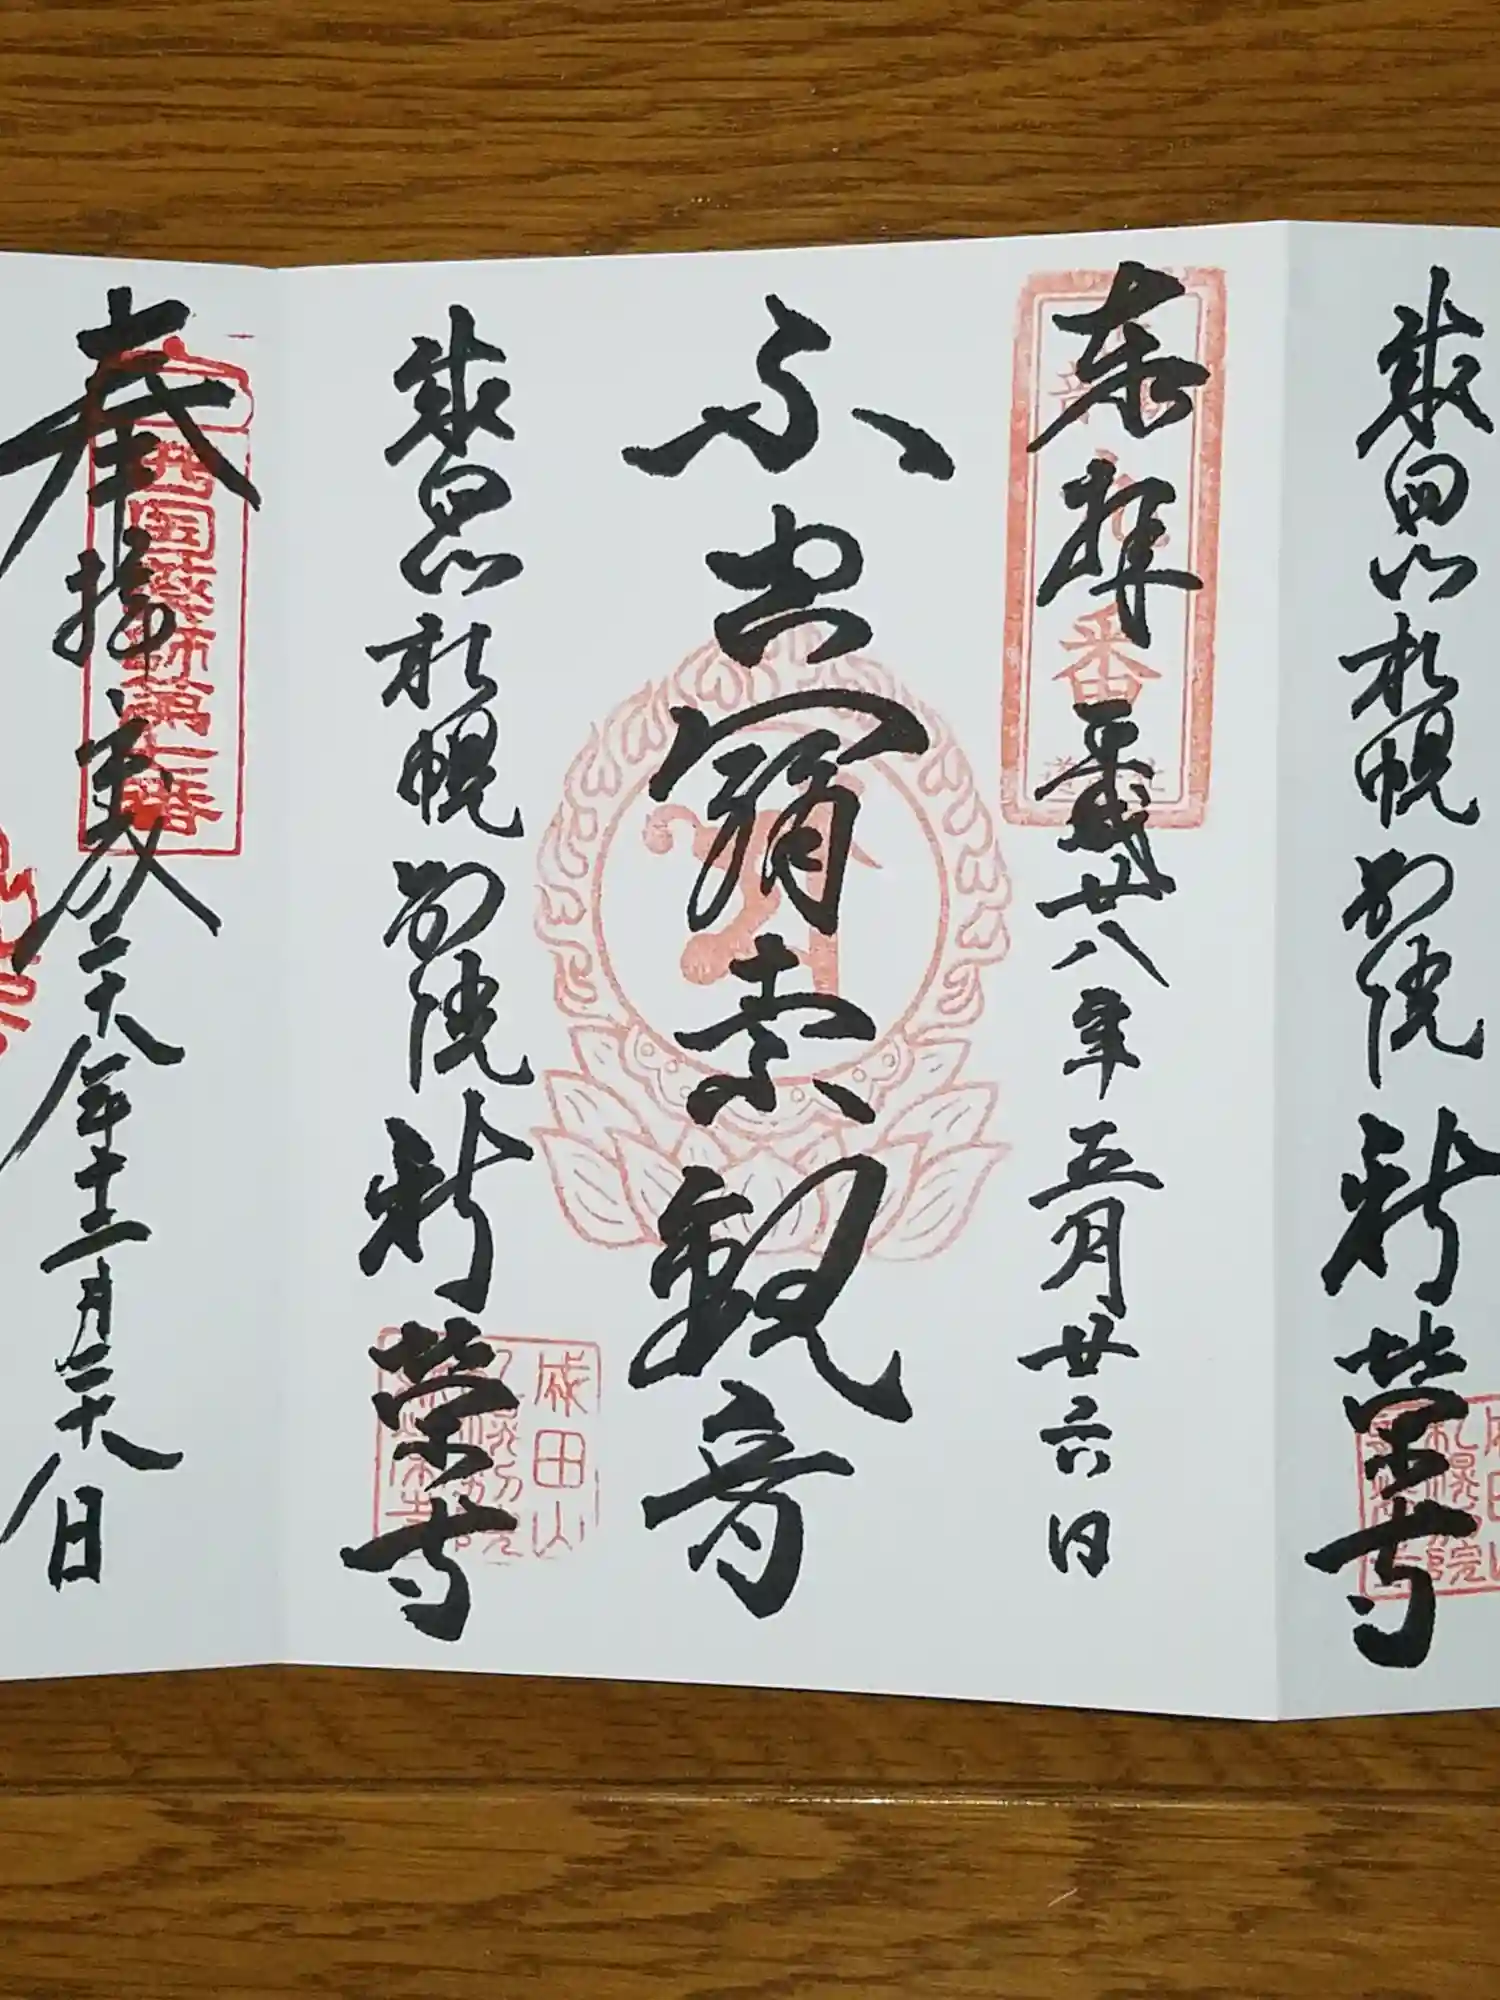 成田山札幌別院新栄寺
成田山
札幌別院
新栄寺
奉拝 平成廿八年五月廿六日
番
不空羂索観音
成田山札幌別院新栄寺
成田山
札幌別院
新栄寺
奉拝 平成二十八年十二月二十八日
西国薬師第一番